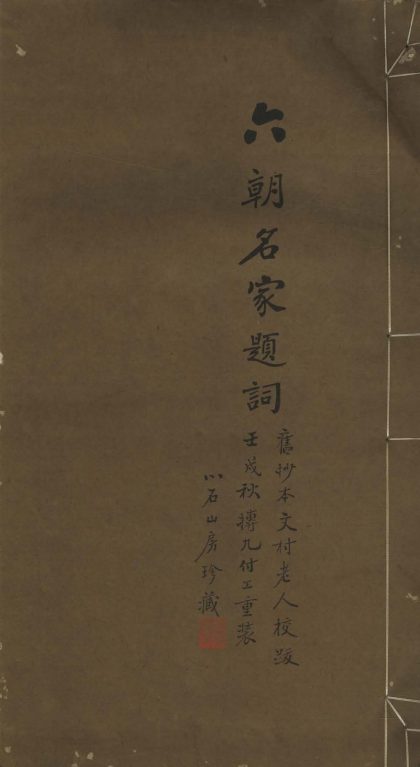 六朝名家題詞
舊抄本文村老人校跋
壬戌秋摶九付工重裝
小石山房珍藏